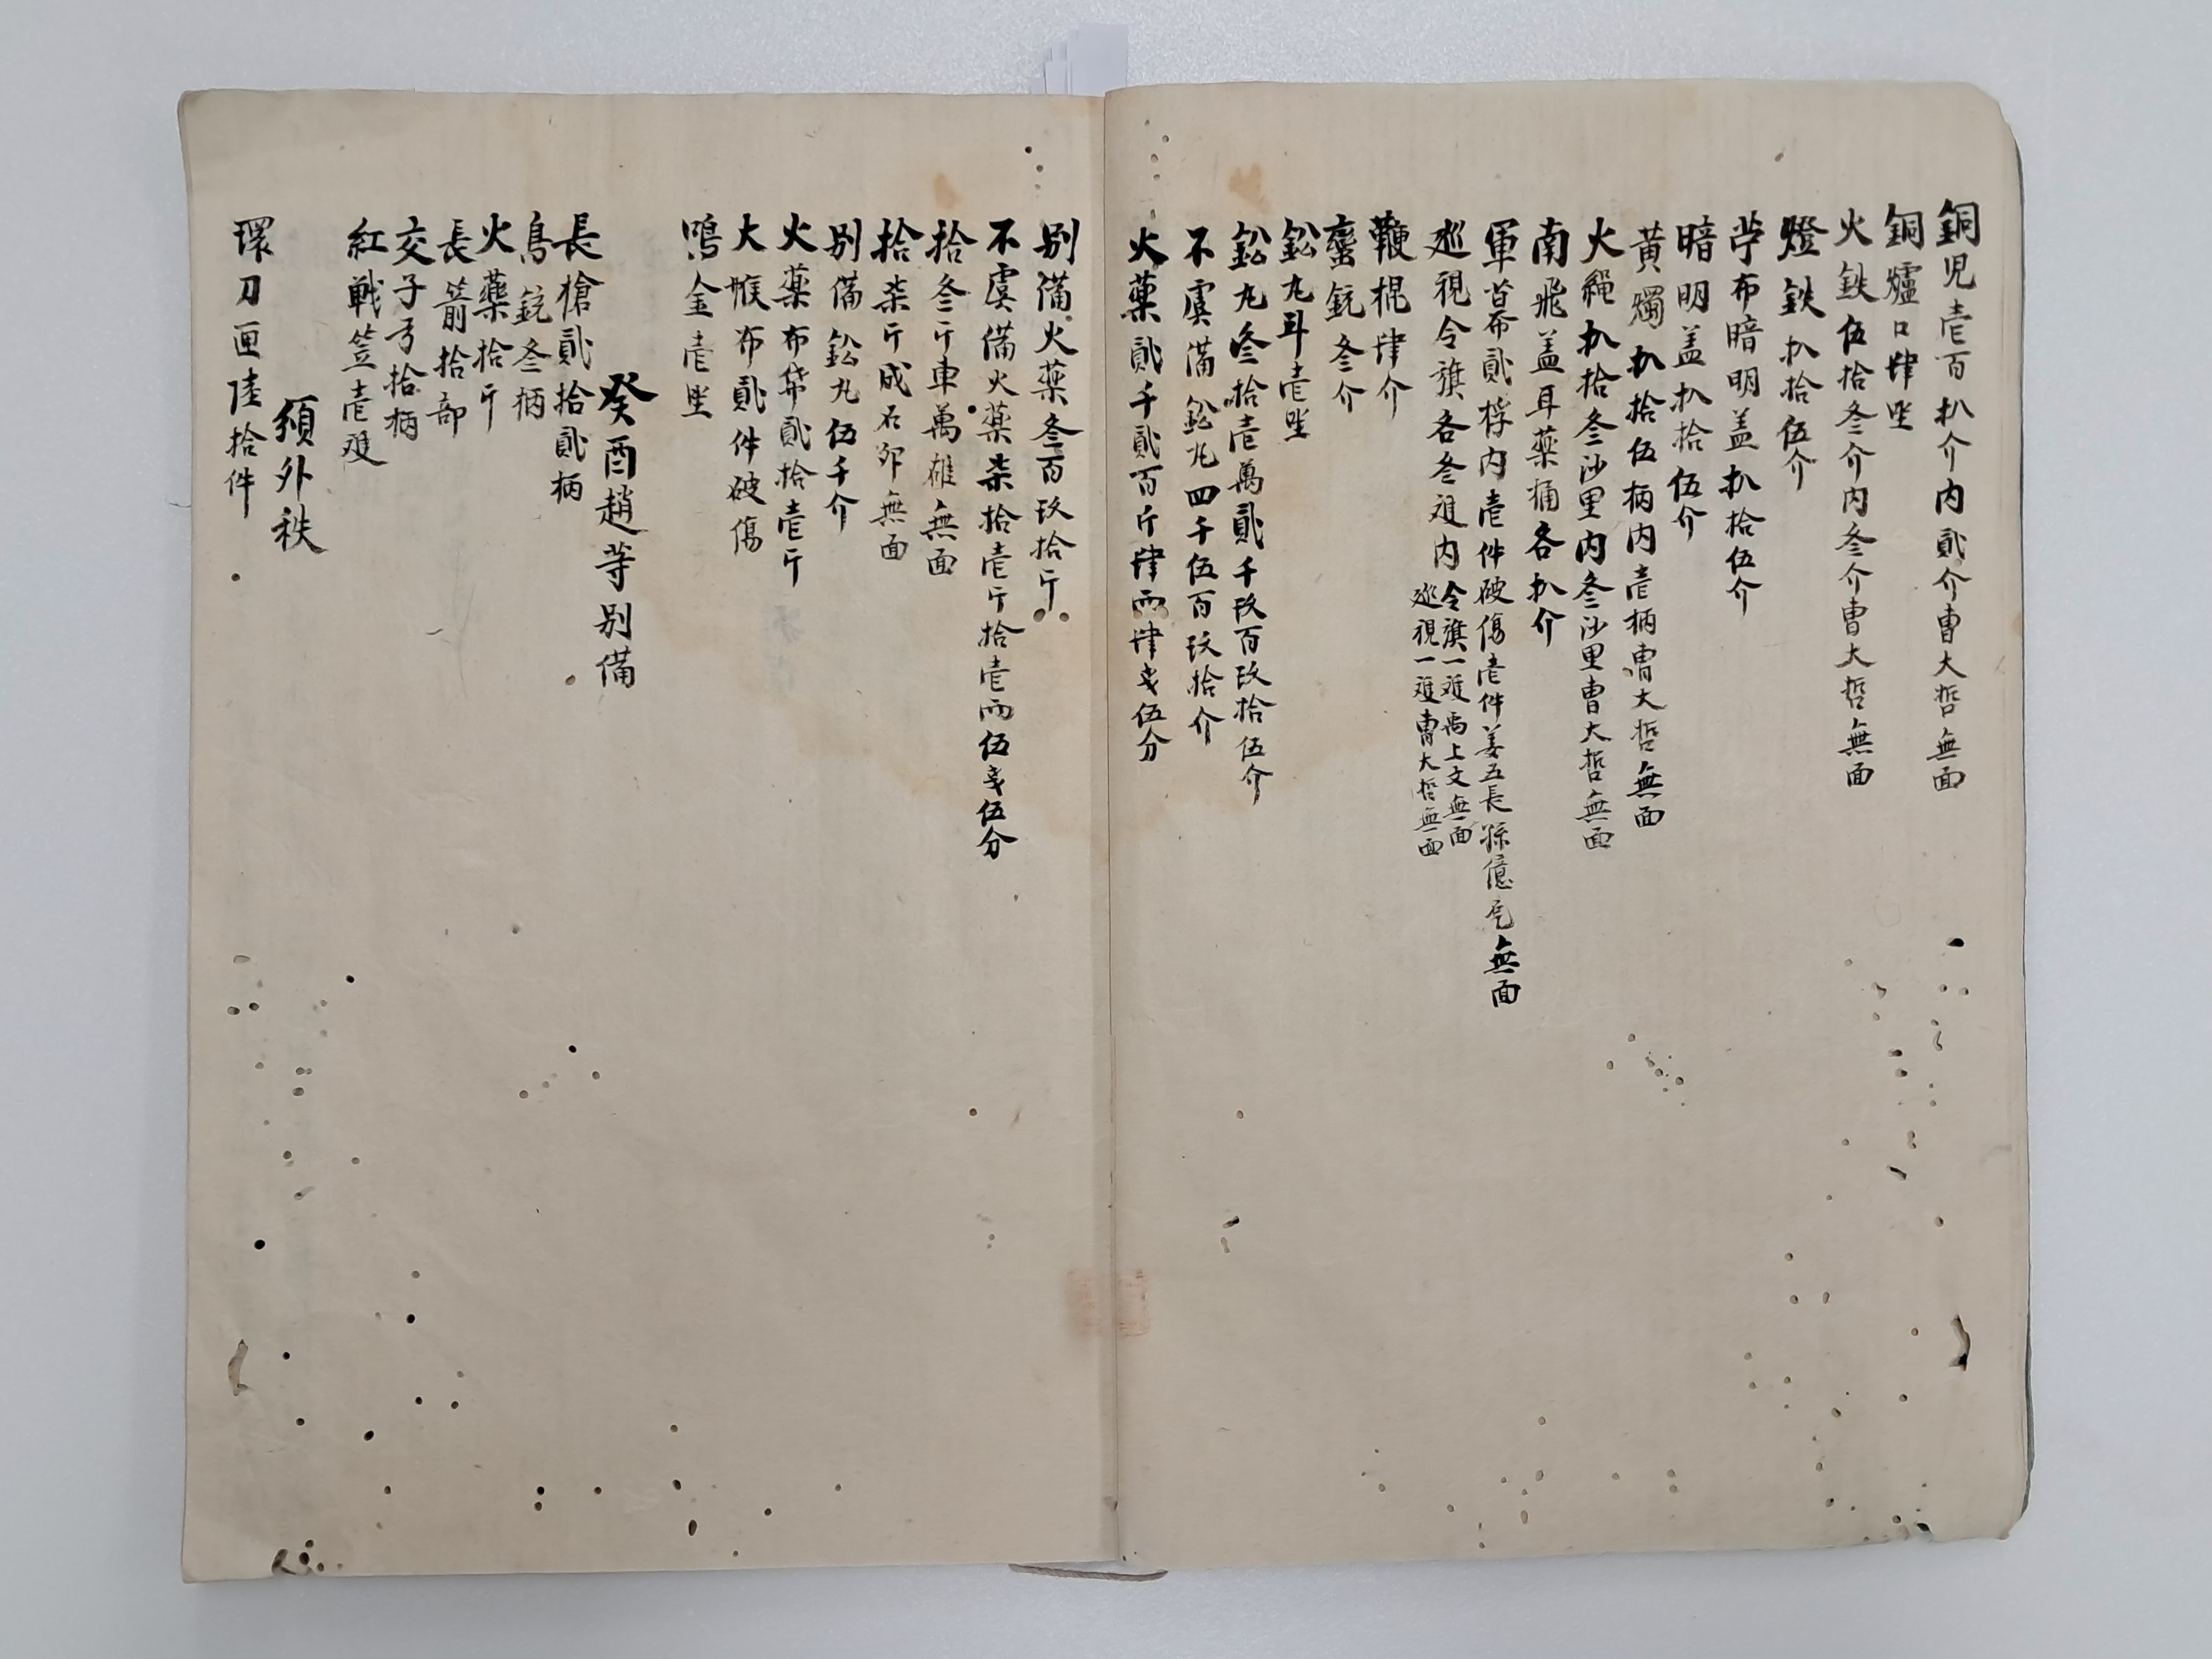 銅児壱百扒介內貳介曺大哲無面
銅爐口肆坐
火鉄伍拾叄介內叄介曺大哲無面
燈鉄扒拾伍介
苧布暗明盖扒拾伍介
暗明盖扒拾伍介
黃燭扒拾伍柄內壱柄曺大哲無面
火繩扒拾叄沙里內叄沙里曺大哲無面
南飛盖耳藥桶各扒介
軍幕布貳桴內壱件破傷壱件姜五長孫億 無面
巡視令旗各叄䨥內
令旗一䨥禹上文無面
巡視一䨥曺大哲無面
鞭棍肆介
蛮銃叄介
鈆丸斗壱坐
鈆丸叄拾壱萬貳千玖百玖拾伍介
不虞備鈆丸四千伍百玖拾介
火藥貳千貳百斤肆兩肆戔伍分
別備火藥叄百玖拾斤
不虞備火藥柒拾壱斤拾壱兩伍戔伍分
拾叄斤車萬雄無面
拾柒斤成石 無面
別備鈆丸伍千介
火藥布帒貳拾壱斤
大帿布貳件破傷
鳴金壱坐
癸酉趙等別備
長槍貳拾貳柄
鳥銃叄柄
火藥拾斤
長箭拾部
交子弓拾柄
紅戦笠壱䨥
額外秩
環刀匣陸拾件